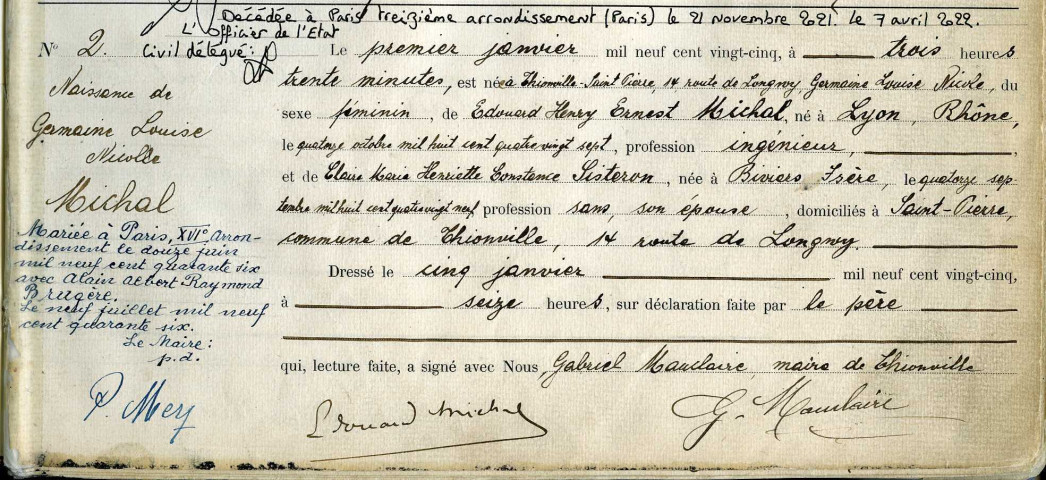 Décédée à Paris treizième arrondissement (Paris) le 21 novembre 2021. Le 7 avril 2022.
L'Officier de l'Etat
Civil délégué:
N° 2.
Naissance de
Germaine Louise
Nicolle
Michal
Mariée à Paris, XVI° Arron-
dissement le douze juin
mil neuf cent quarante six
avec Alain Albert Raymond
Brugère.
Le neuf juillet mil neuf
cent quarante six.
Le Maire:
p.d.
P. Mey
Le premier janvier mil neuf cent vingt-cinq, à trois heures
trente minutes, est née à Thionville-Saint Pierre, 14 route de Longwy Germaine Louise Nicole, du
sexe féminin, de Edouard Henry Ernest Michal, né à Lyon, Rhône,
le quatorze octobre mil huit cent quatre vingt sept, profession ingénieur,
et de Claire Marie Henriette Constance Sisteron, née à Biviers Isère, le quatorze sep-
tembre mil huit cent quatre vingt neuf profession sans, son épouse, domiciliés à Saint-Pierre,
commune de Thionville, 14 route de Longwy.
Dressé le cinq janvier mil neuf cent vingt-cinq,
à seize heures, sur déclaration faite par le père
qui, lecture faite, a signé avec Nous, Gabriel Mauclaire, maire de Thionville
Edouard Michal
G. Mauclaire